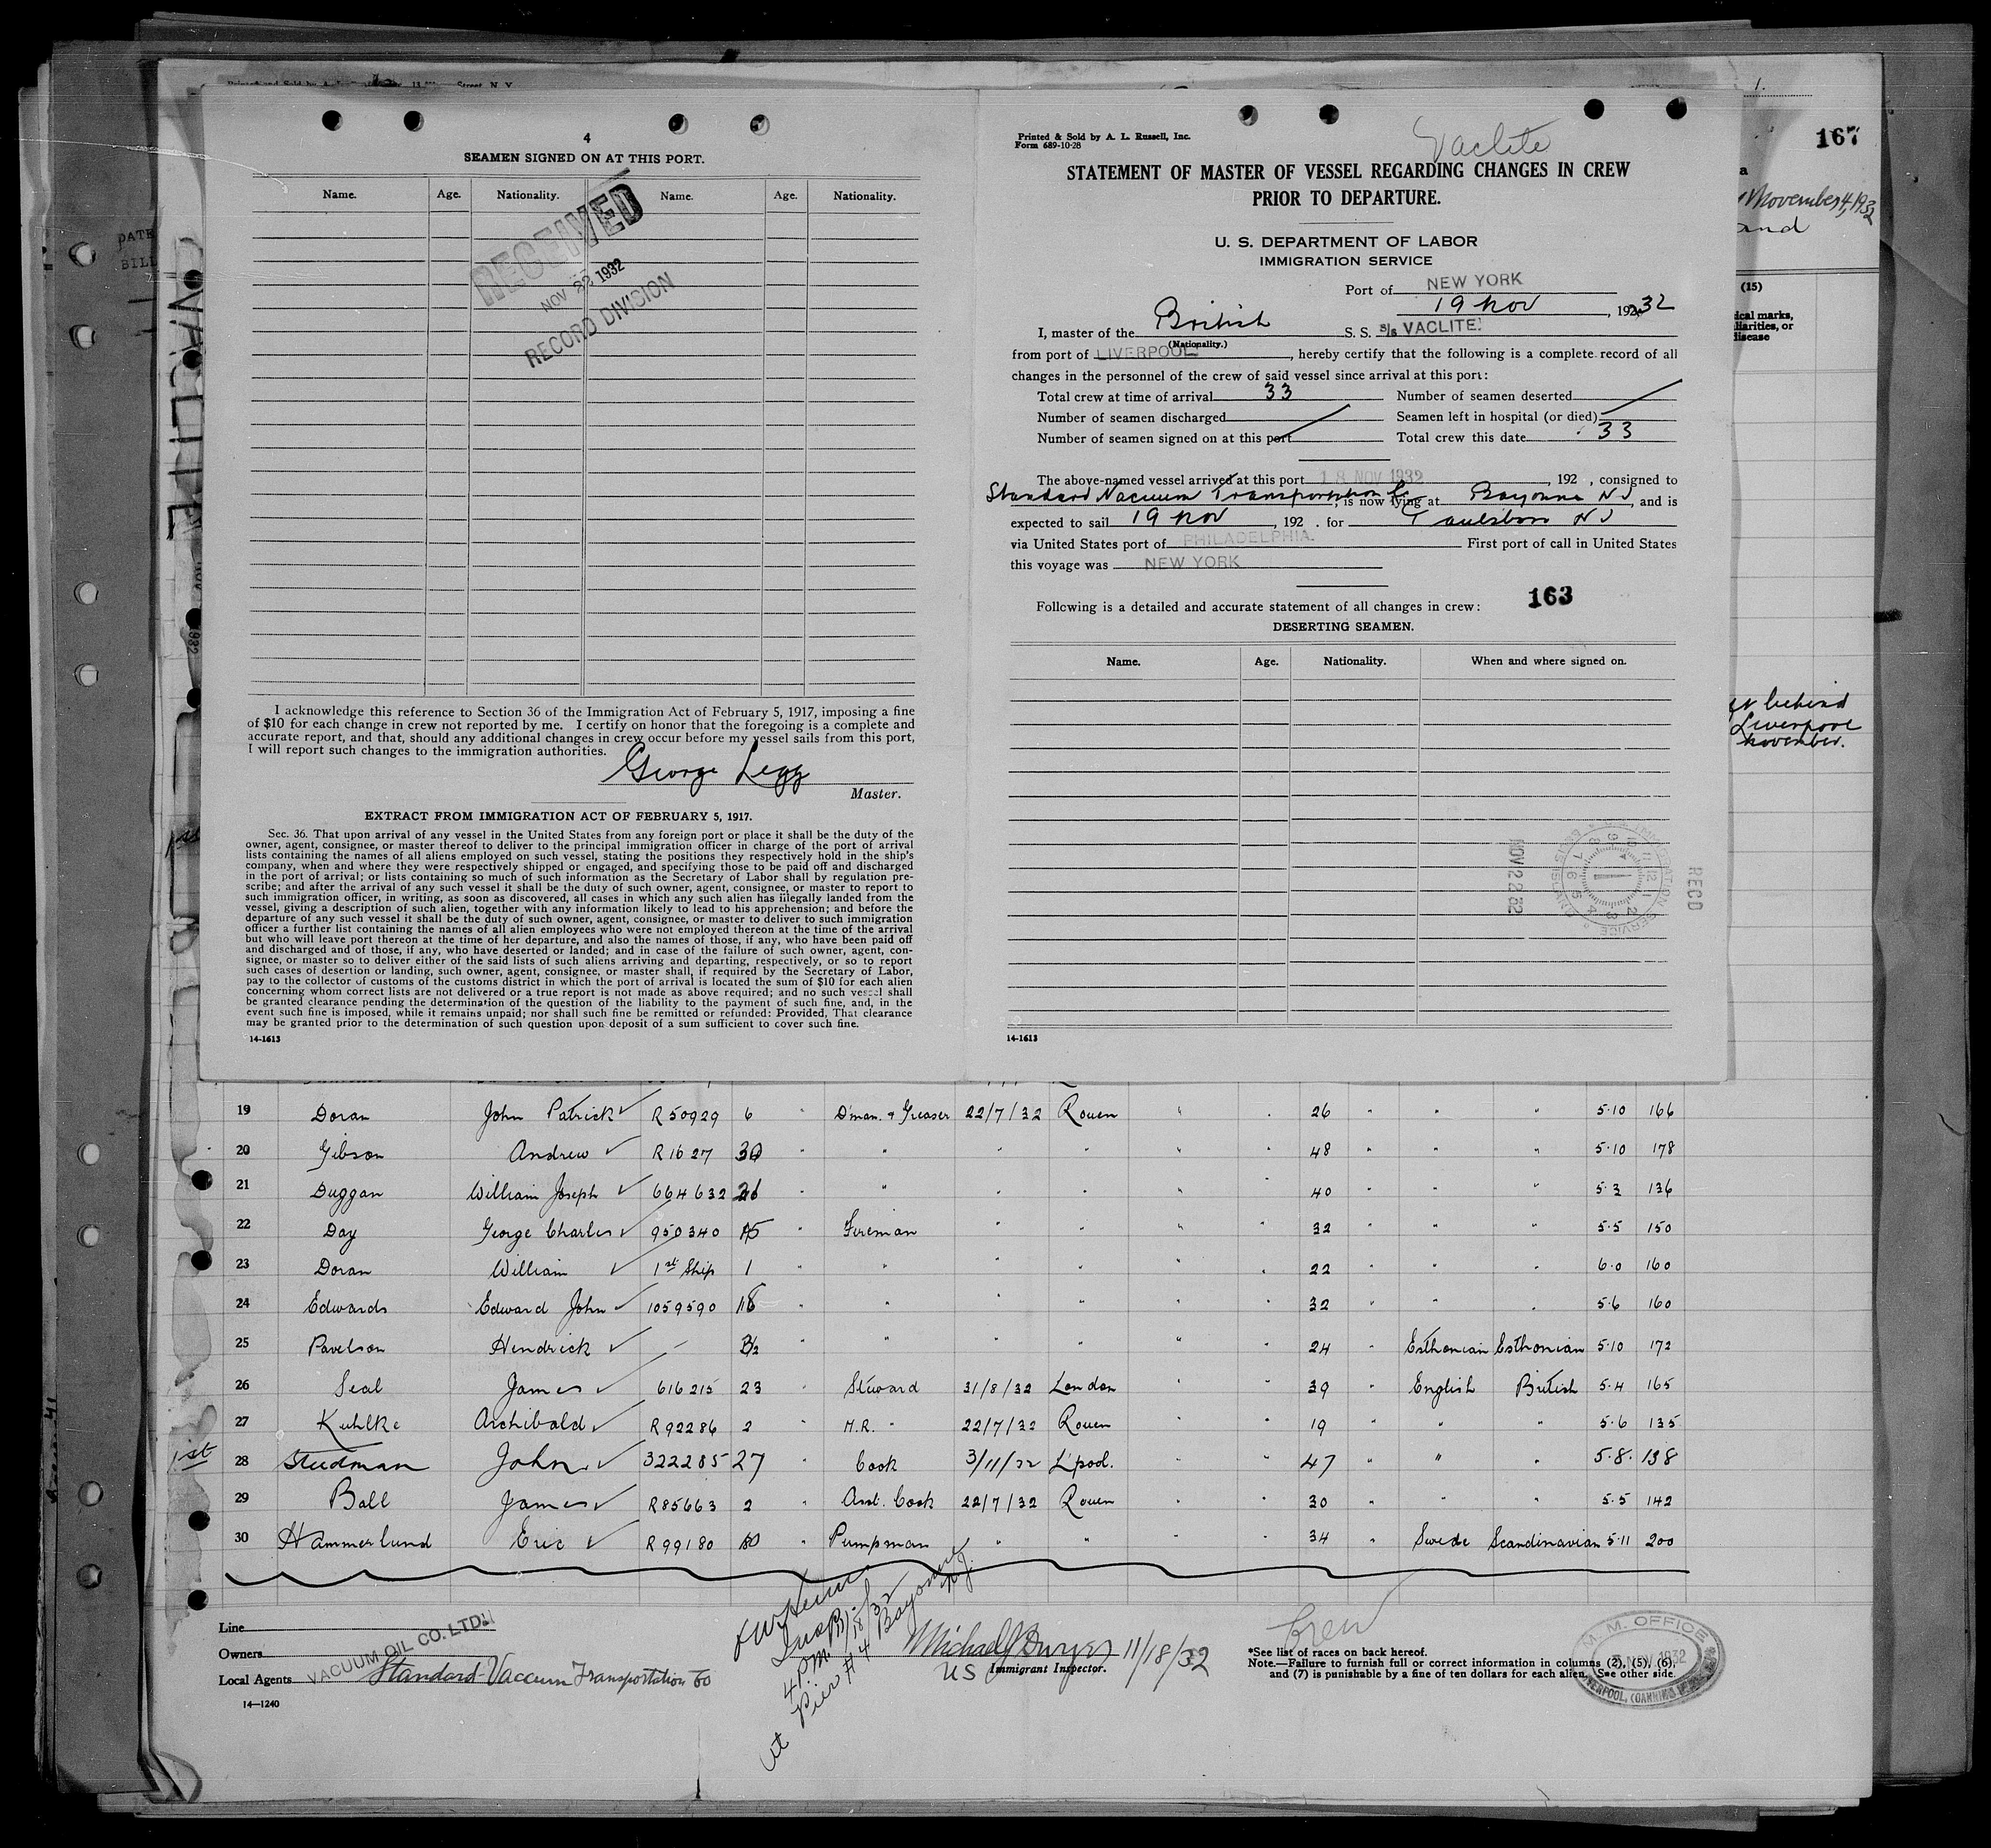 167
November 4, 1932
and
(15)
marks,
or
disease
behind
Liverpool
November.
DATE
VACLITE
4
SEAMEN SIGNED ON AT THIS PORT.
Name. Age. Nationality. Name. Age. Nationality.
RECEIVED
NOV 1932
RECORD DIVISION
I acknowledge this reference to Section 36 of the Immigration Act of February 5, 1917, imposing a fine
of $10 for each change in crew not reported by me. I certify on honor that the foregoing is a complete and
accurate report, and that, should any additional changes in crew occur before my vessel sails from this port,
I will report such changes to the immigration authorities.
George Legg
Master.
EXTRACT FROM IMMIGRATION ACT OF FEBRUARY 5, 1917.
Sec. 36. That upon arrival of any vessel in the United States from any foreign port or place it shall be the duty of the
owner, agent, consignee, or master thereof to deliver to the principal immigration officer in charge of the port of arrival
lists containing the names of all aliens employed on such vessel, stating the positions they respectively hold in the ship's
company, when and where they were respectively shipped or engaged, and specifying those to be paid off and discharged
in the port of arrival; or lists containing so much of such information as the Secretary of Labor shall by regulation pre-
scribe; and after the arrival of any such vessel it shall be the duty of such owner, agent, consignee, or master to report to
such immigration officer, in writing, as soon as discovered, all cases in which any such alien has illegally landed from the
vessel, giving a description of such alien, together with any information likely to lead to his apprehension; and before the
departure of any such vessel it shall be the duty of such owner, agent, consignee, or master to deliver to such immigration
officer a further list containing the names of all alien employees who were not employed thereon at the time of the arrival
but who will leave port thereon at the time of her departure, and also the names of those, if any, who have been paid off
and discharged and of those, if any, who have deserted or landed; and in case of the failure of such owner, agent, con-
signee, or master so to deliver either of the said lists of such aliens arriving and departing, respectively, or so to report
such cases of desertion or landing, such owner, agent, consignee, or master shall, if required by the Secretary of Labor,
pay to the collector of customs of the customs district in which the port of arrival is located the sum of $10 for each alien
concerning whom correct lists are not delivered or a true report is not made as above required; and no such vessel shall
be granted clearance pending the determination of the question of the liability to the payment of such fine, and, in the
event such fine is imposed, while it remains unpaid; nor shall such fine be remitted or refunded: Provided, That clearance
may be granted prior to the determination of such question upon deposit of a sum sufficient to cover such fine.
14-1613
Printed & Sold by A. L. Russell, Inc.
Form 689-10-28
Vaclite
STATEMENT OF MASTER OF VESSEL REGARDING CHANGES IN CREW
PRIOR TO DEPARTURE.
U. S. DEPARTMENT OF LABOR
IMMIGRATION SERVICE
Port of NEW YORK
19 Nov, 1932
I, master of the British S. S. S/S VACLITE
(Nationality.)
from port of LIVERPOOL, hereby certify that the following is a complete record of all
changes in the personnel of the crew of said vessel since arrival at this port:
Total crew at time of arrival 33 Number of seamen deserted
Number of seamen discharged Seamen left in hospital (or died)
Number of seamen signed on at this port Total crew this date 33
The above-named vessel arrived at this port 18 NOV 1932, 192 , consigned to
Standard Vacuum Transportation Co, is now lying at Bayonne NJ, and is
expected to sail 19 Nov, 192 . for Paulsboro NJ
via United States port of PHILADELPHIA. First port of call in United States
this voyage was NEW YORK
163
Following is a detailed and accurate statement of all changes in crew:
DESERTING SEAMEN.
Name. Age. Nationality. When and where signed on.
RECD
NOV 22 32
IMMIGRATION SERVICE
14-1613
19 Doran John Patrick R50929 6 " D'man. & Greaser 22/7/32 Rouen " " 26 " " " 5·10 166
20 Gibson Andrew R1627 30 " " " " " " 48 " " " 5·10 178
21 Duggan William Joseph 664632 " " " " " " 40 " " " 5·3 136
22 Day George Charles 950340 15 " Fireman " " " " 32 " " " 5·5 150
23 Doran William 1st Ship 1 " " " " " " 22 " " " 6·0 160
24 Edwards Edward John 1059590 " " " " " " 32 " " " 5·6 160
25 Pavelson Hendrick - " " " " " " 24 " Esthonian Esthonian 5·10 172
26 Seal James 616215 23 " Steward 31/8/32 London " " 39 " English British 5·4 165
27 Kuhlke Archibald R92286 2 " M.R. " 22/7/32 Rouen " " 19 " " " 5·6 135
1st 28 Steedman John 322285 27 " Cook 3/11/32 L'pool. " " 47 " " " 5·8· 138
29 Ball James R85663 2 " Asst. Cook 22/7/32 Rouen " " 30 " " " 5·5 142
30 Hammerlund Eric R99180 10 " Pumpman " " " " 34 " Swede Scandinavian 5·11 200
Line
Owners VACUUM OIL CO. LTD.
Local Agents Standard-Vacuum Transportation Co
14—1240
4 P.M. 11/18/32
at Pier #4 Bayonne N.J.
Michael J Dwyer 11/18/32
US Immigrant Inspector.
Crew
*See list of races on back hereof.
Note.—Failure to furnish full or correct information in columns (2), (5), (6),
and (7) is punishable by a fine of ten dollars for each alien. See other side.
M. M. OFFICE
NOV 1932
LIVERPOOL,